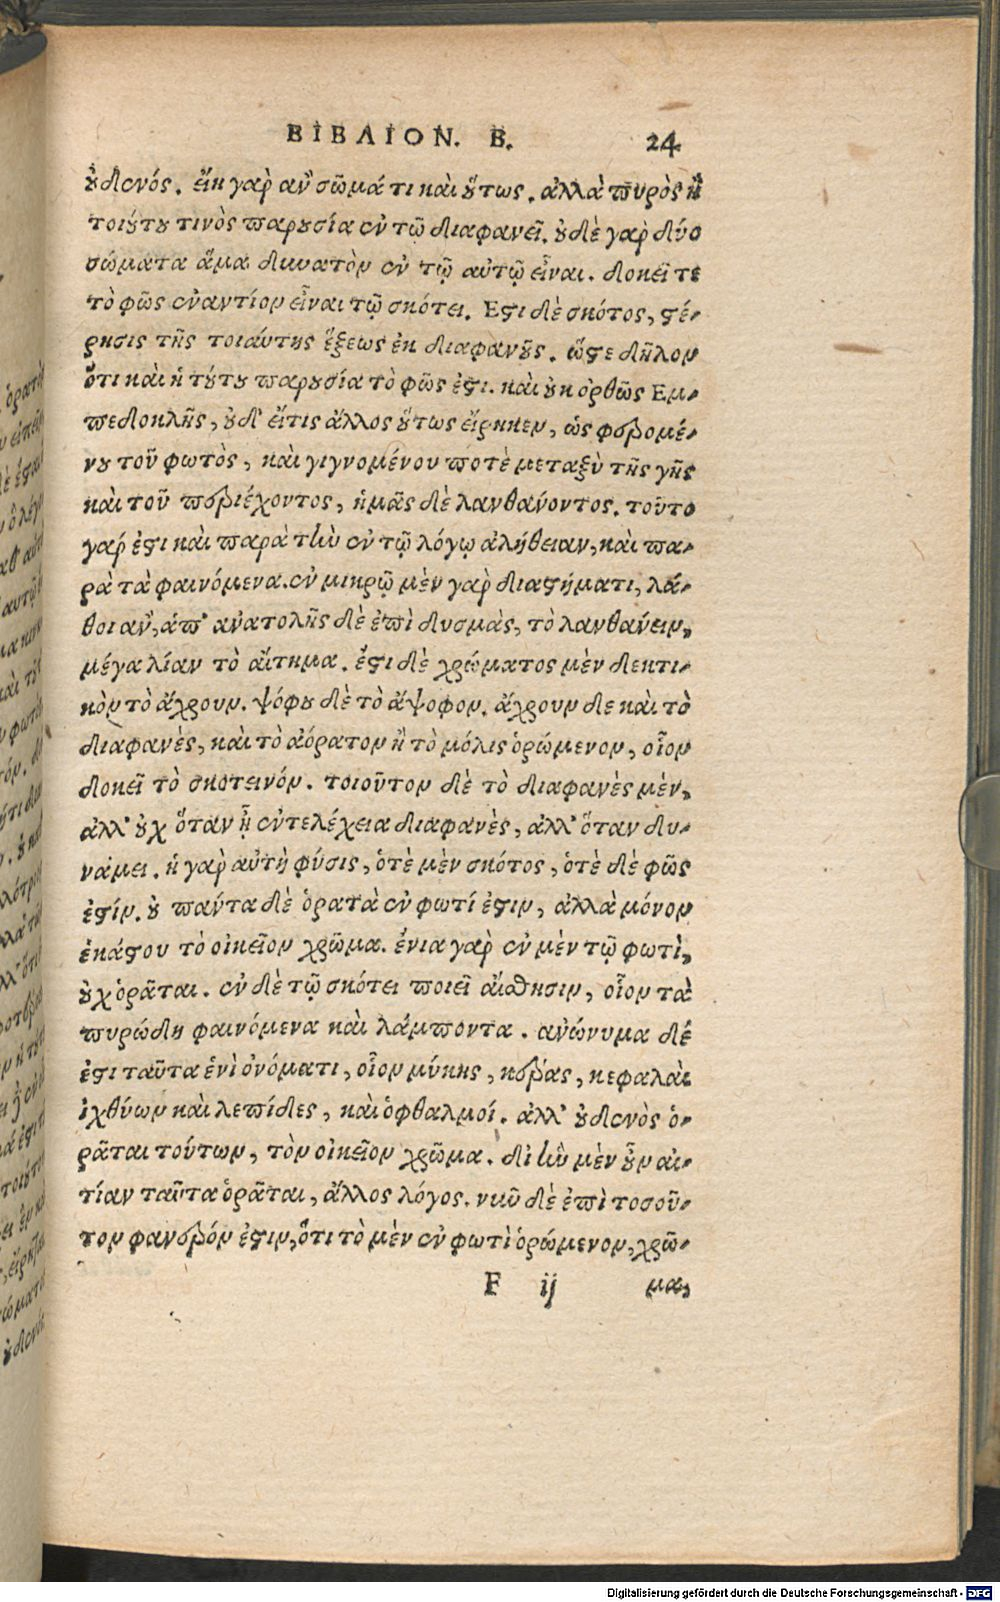 ΒΙΒΛΙΟΝ. Β. 24
ȣ̓δενός. εἴη γαρ̀ αν̓ σῶμά τι καὶ ȣ̔́τως. αλλὰ πυρὸς ἢ
τοιȣ́τȣ τινὸς παρȣσία ἐν τῶ διαφανεῖ. ȣ̓δὲ γαρ̀ δύο
σώματα ἅμα δυνατὸν ἐν τῷ αὐτῷ εἶναι. δοκεῖ τε
τὸ φῶς ἐναντίον εἶναι τῷ σκότει. Εϛι δὲ σκότος, ϛέ-
ρησις τῆς τοιάυτης ἕξεως ἐκ διαφανȣ͂ς. ὥϛε δῆλον
ὅτι καὶ ἡ τȣ́τȣ παρȣσία τὸ φῶς ἐϛι. καὶ ȣ̓κ ὀρθῶς Εμ-
πεδοκλῆς, ȣ̓δ' εἴτις ἄλλος ȣ̔́τως εἴρηκεν, ὡς φερομέ-
νȣ τοῦ φωτὸς, καὶ γιγνομένου ποτὲ μεταξὺ τῆς γῆς
καὶ τοῦ περιέχοντος, ἡμᾶς δὲ λανθάνοντος. τοῦτο
γαρ́ ἐϛι καὶ παρὰ τὴν ἐν τῷ λόγῳ αλήθειαν, καὶ πα-
ρὰ τὰ φαινόμενα. ἐν μικρῷ μὲν γαρ̀ διαϛήματι, λά-
θοι αν̓, ἀπ' ανατολῆς δὲ ἐπὶ δυσμὰς, τὸ λανθάνειν,
μέγα λίαν τὸ αἴτημα. ἔϛι δὲ χρώματος μὲν δεκτι-
κὸν τὸ ἄχρουν. ψόφȣ δὲ τὸ ἄψοφον. ἄχρουν δε καὶ τὸ
διαφανὲς, καὶ τὸ αόρατον ἢ τὸ μόλις ὁρώμενον, οἷον
δοκεῖ τὸ σκοτεινόν. τοιοῦτον δὲ τὸ διαφανὲς μὲν,
αλλ' ȣ̓χ ὅταν ᾖ ἐντελέχεια διαφανὲς, αλλ' ὅταν δυ-
νάμει. ἡ γαρ̀ αὐτὴ φύσις, ὁτὲ μὲν σκότος, ὁτὲ δὲ φῶς
ἐϛίν. ȣ̓ πάντα δὲ ὁρατὰ ἐν φωτί ἐϛιν, αλλὰ μόνον
ἑκάϛου τὸ οἰκεῖον χρῶμα. ἔνια γαρ̀ ἐν μὲν τῷ φωτὶ,
ȣ̓χ ὁρᾶται. ἐν δὲ τῷ σκότει ποιεῖ αἴσθησιν, οἷον τὰ
πυρώδη φαινόμενα καὶ λάμποντα. ανώνυμα δέ
ἐϛι ταῦτα ἑνὶ ὀνόματι, οἷον μύκης, κέρας, κεφαλαὶ
ἰχθύων καὶ λεπίδες, καὶ ὀφθαλμοί. αλλ' ȣ̓δενὸς ὁ-
ρᾶται τούτων, τὸν οἰκεῖον χρῶμα. δι' ἣν μὲν ȣ͂̓ν αἰ-
τίαν ταῦτα ὁρᾶται, ἄλλος λόγος. νῦν δὲ ἐπὶ τοσοῦ-
τον φανερόν ἐϛιν, ὅτι τὸ μὲν ἐν φωτὶ ὁρώμενον, χρῶ-
F ij μα,
Digitalisierung gefördert durch die Deutsche Forschungsgemeinschaft - DFG